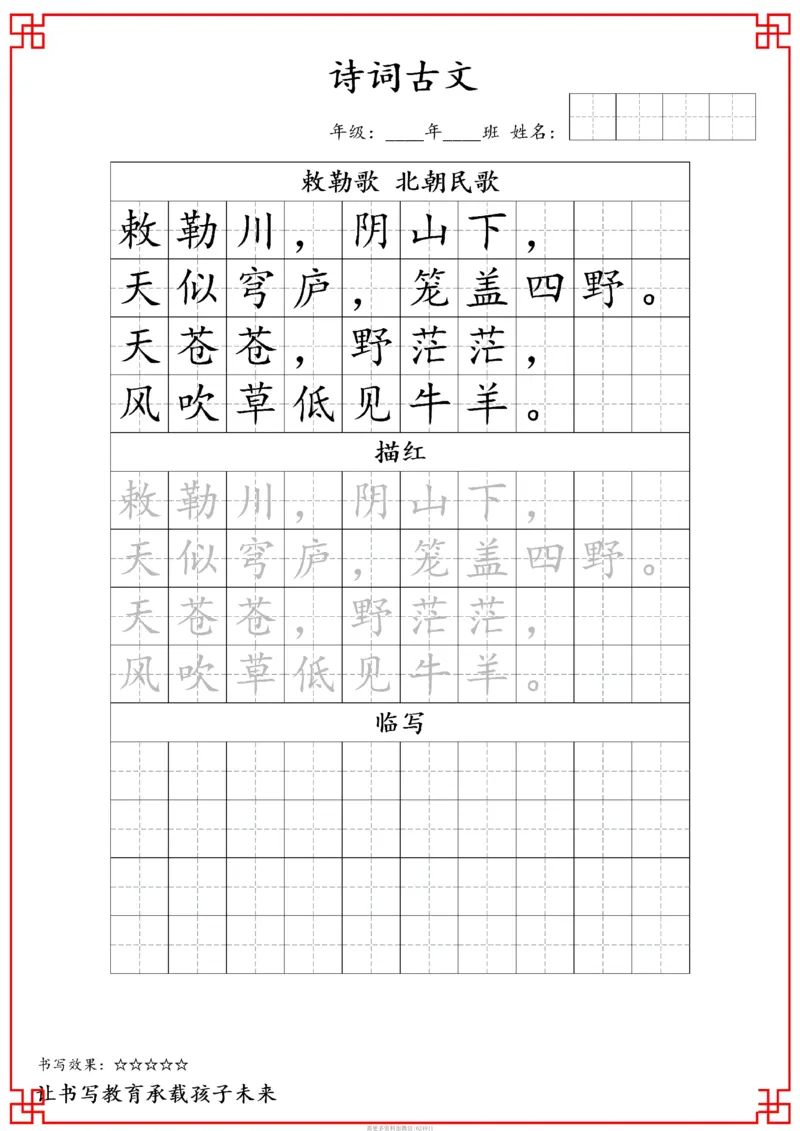 诗词古文
年级：____年____班 姓名：
敕勒歌 北朝民歌
敕勒川，阴山下，
天似穹庐，笼盖四野。
天苍苍，野茫茫，
风吹草低见牛羊。
描红
敕勒川，阴山下，
天似穹庐，笼盖四野。
天苍苍，野茫茫，
风吹草低见牛羊。
临写
书写效果：☆☆☆☆☆
让书写教育承载孩子未来